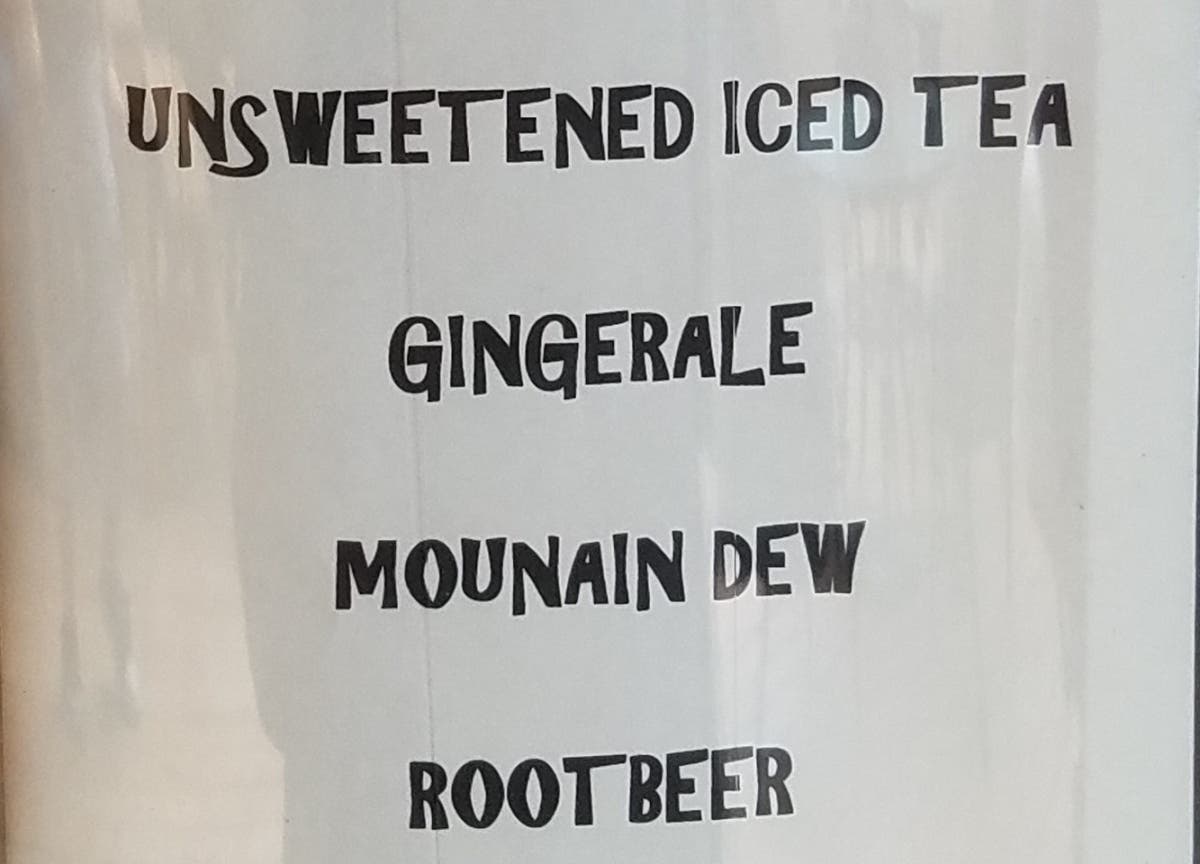 UNSWEETENED ICED TEA
GINGERALE
MOUNAIN DEW
ROOTBEER